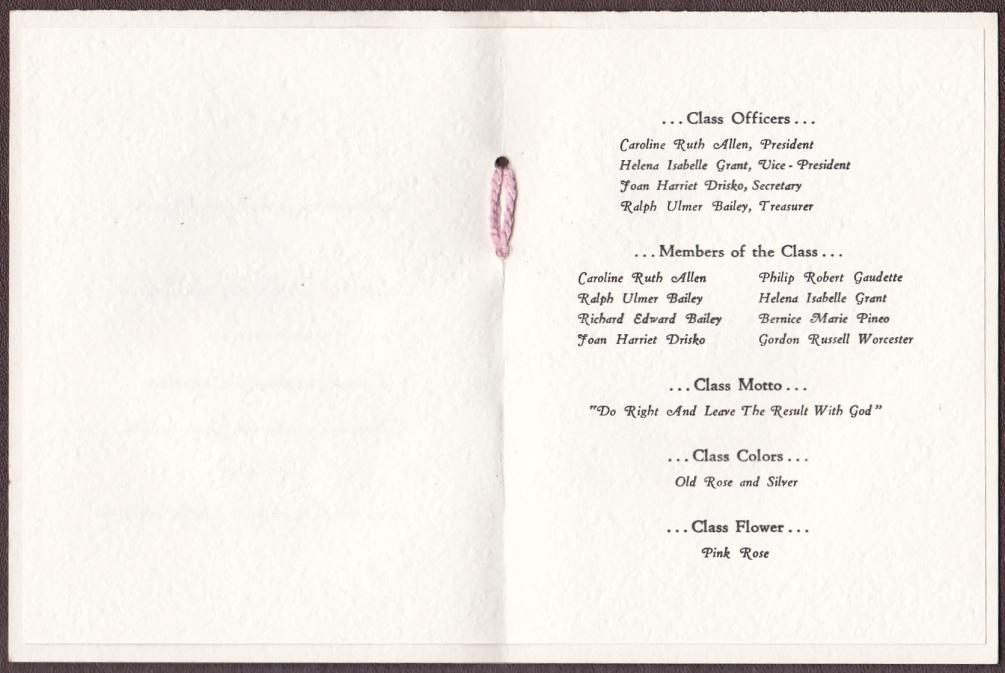 ...Class Officers...
Caroline Ruth Allen, President
Helena Isabelle Grant, Vice - President
Joan Harriet Drisko, Secretary
Ralph Ulmer Bailey, Treasurer
...Members of the Class...
Caroline Ruth Allen
Ralph Ulmer Bailey
Richard Edward Bailey
Joan Harriet Drisko
Philip Robert Gaudette
Helena Isabelle Grant
Bernice Marie Pineo
Gordon Russell Worcester
...Class Motto...
"Do Right And Leave The Result With God"
...Class Colors...
Old Rose and Silver
...Class Flower...
Pink Rose